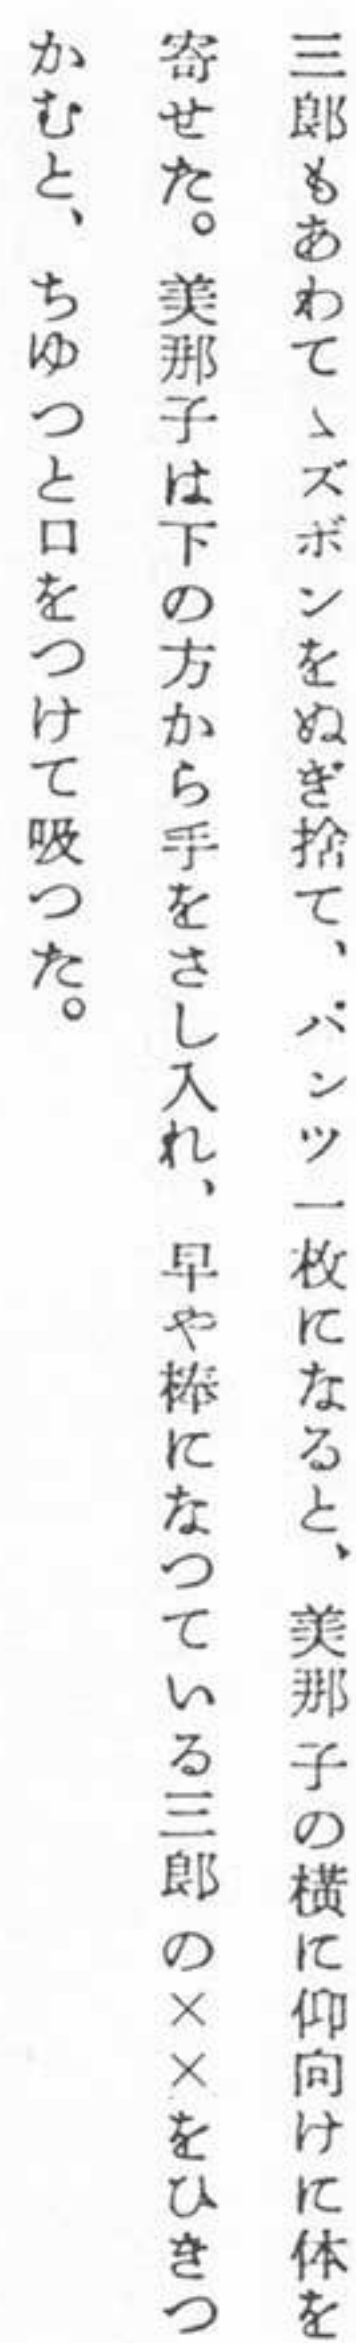 三郎もあわてゝズボンをぬぎ捨て、パンツ一枚になると、美那子の横に仰向けに体を
寄せた。美那子は下の方から手をさし入れ、早や棒になつている三郎の××をひきつ
かむと、ちゆつと口をつけて吸つた。